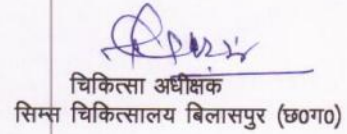 चिकित्सा अधीक्षक
सिम्स चिकित्सालय बिलासपुर (छ०ग०)